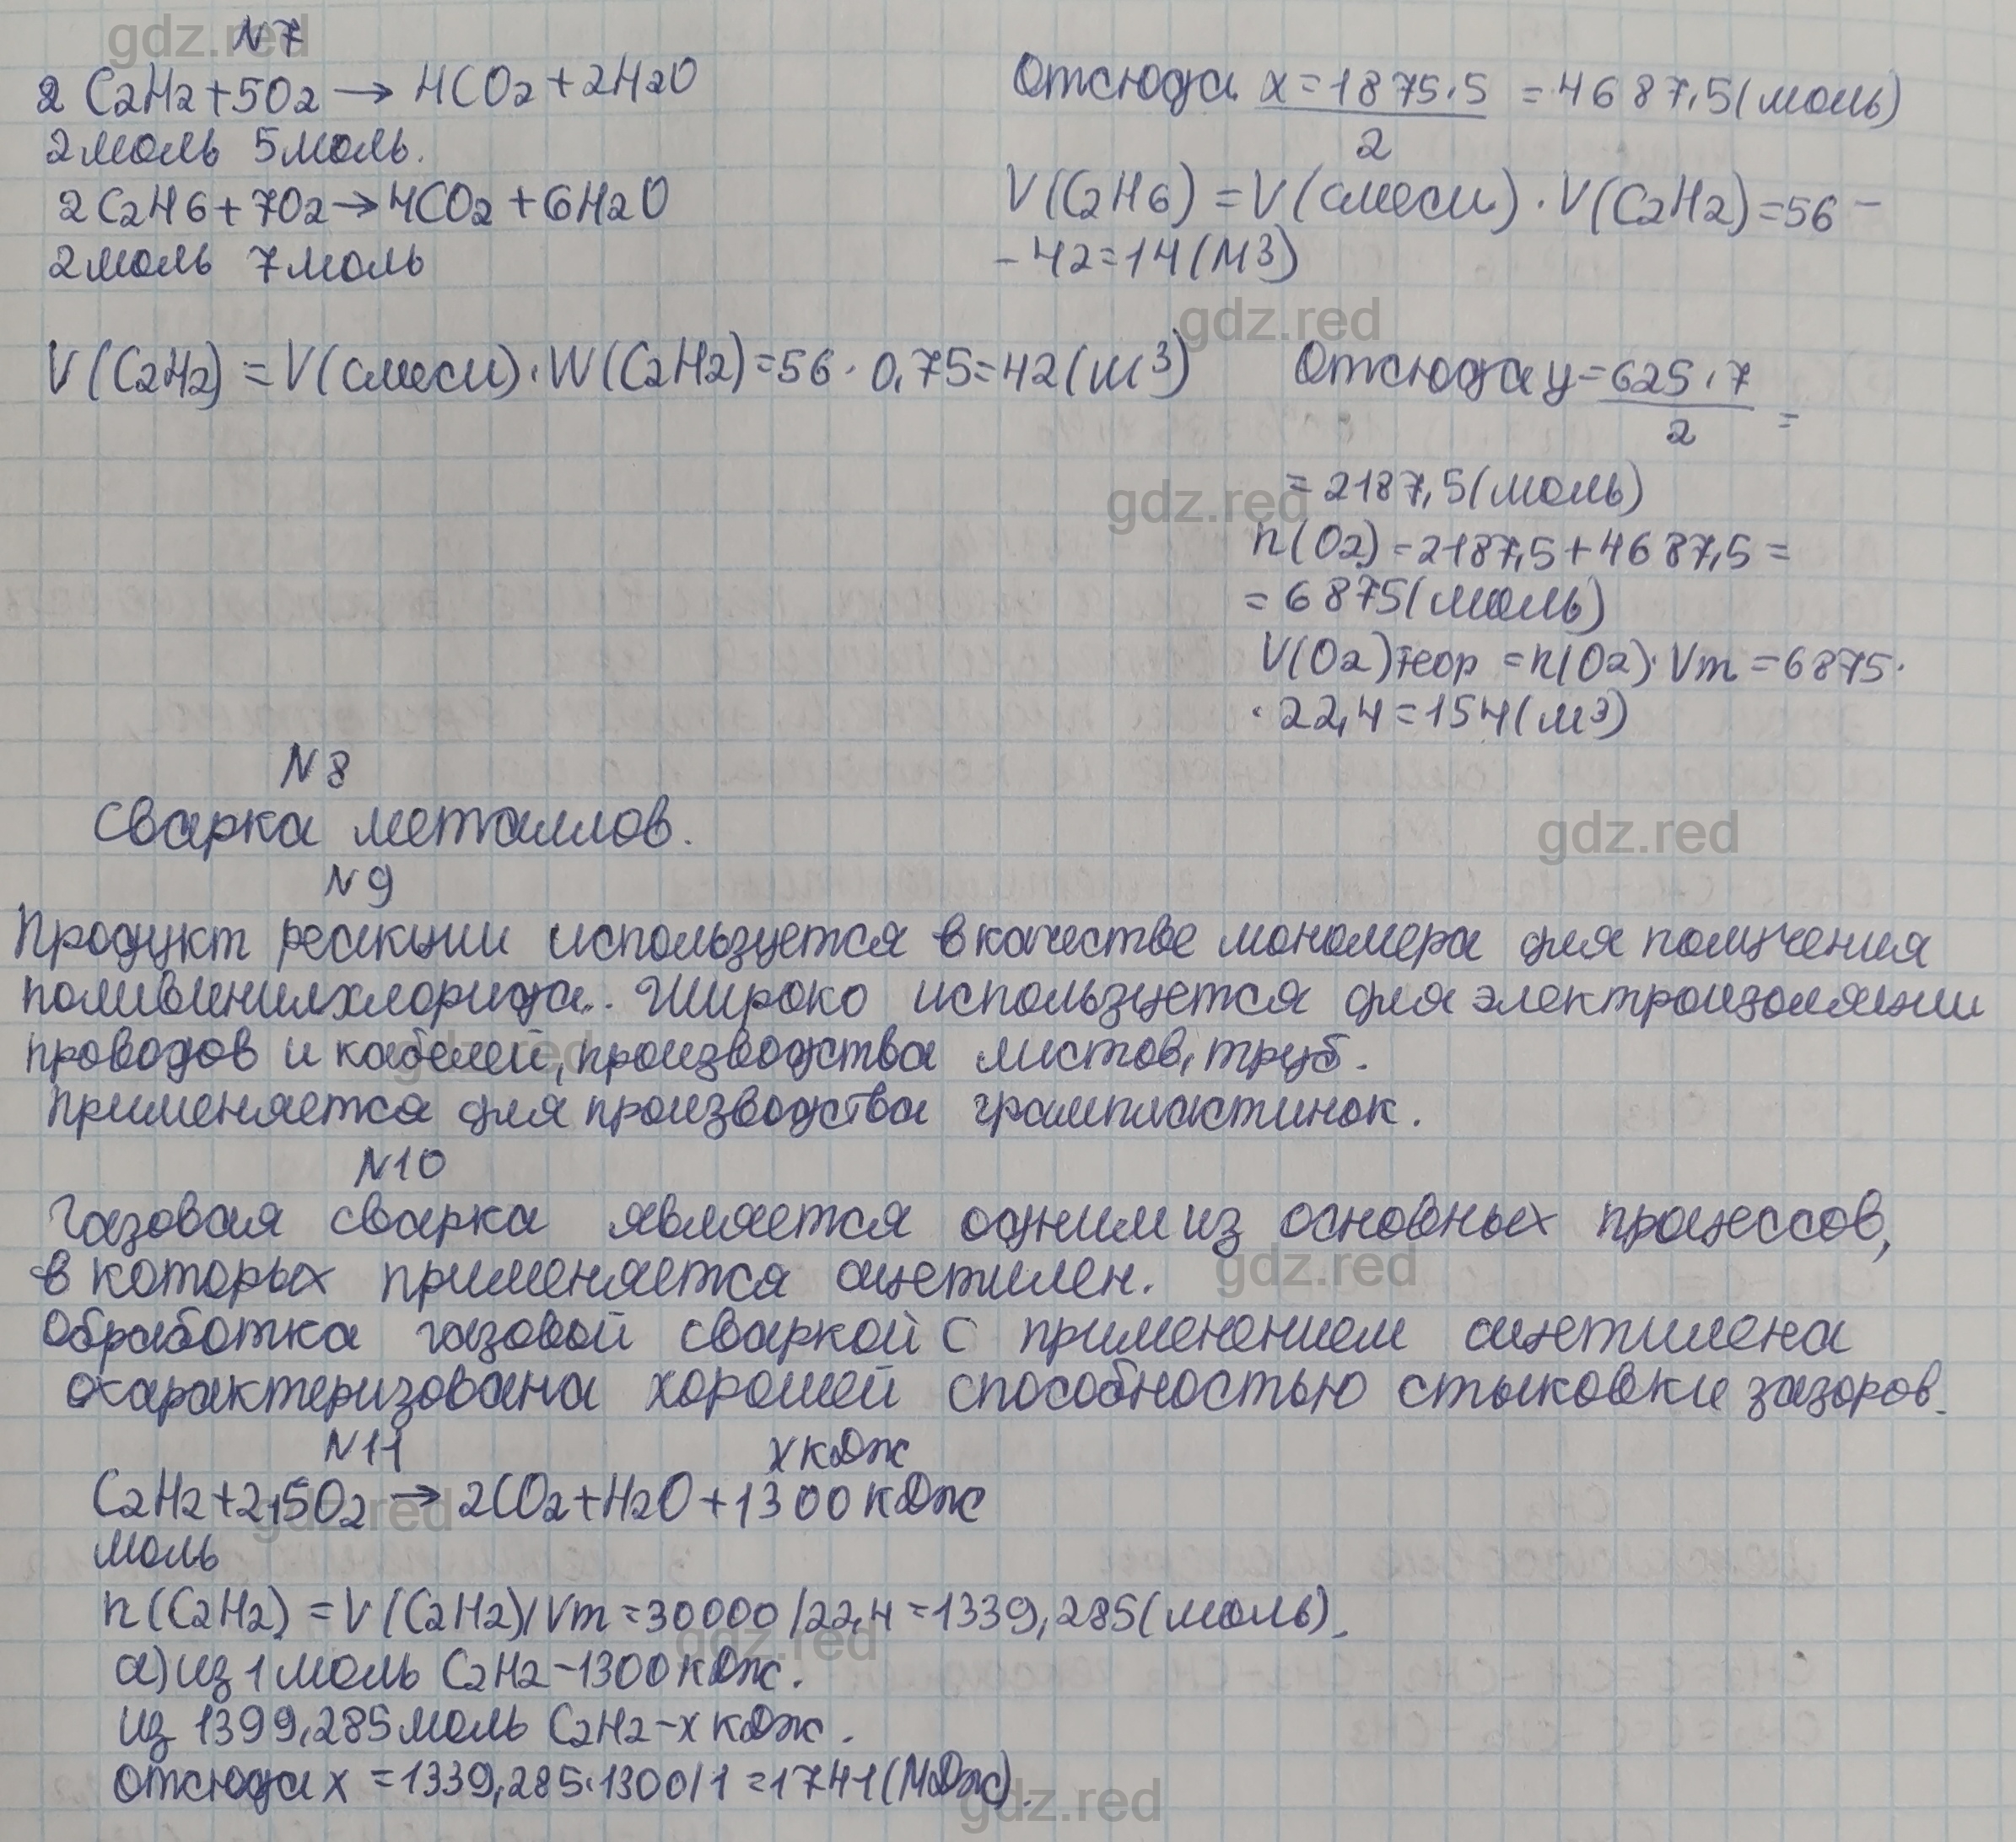 N 7
2 C2H2+5O2→4CO2+2H2O
2моль 5моль.
2C2H6+7O2→4CO2+6H2O
2моль 7моль
V(C2H2)=V(смеси)·W(C2H2)=56·0,75=42(м3)
Отсюда x=1875·5/2=4687,5(моль)
V(C2H6)=V(смеси)·V(C2H2)=56-
-42=14(м3)
Отсюда y=625·7/2=
=2187,5(моль)
n(O2)=2187,5+4687,5=
=6875(моль)
V(O2)теор=n(O2)·Vm=6875·
·22,4=154(м3)
N 8
Сварка металлов.
N 9
Продукт реакции используется в качестве мономера для получения
поливинилхлорида.. Широко используется для электроизоляции
проводов и кабелей, производства листов, труб.
Применяется для производства грампластинок.
N10
Газовая сварка является одним из основных процессов,
в которых применяется ацетилен.
Обработка газовой сваркой с применением ацетилена
охарактеризована хорошей способностью стыковки зазоров.
N11
x кДж
C2H2+2,5O2→2CO2+H2O+1300кДж
моль
n(C2H2)=V(C2H2)/Vm=30000/22,4=1339,285(моль).
а)из 1 моль C2H2-1300кДж.
из 1399,285моль C2H2-x кДж.
отсюда x=1339,285·1300/1=1741(МДж).
gdz.red
gdz.red
gdz.red
gdz.red
gdz.red
gdz.red
gdz.red
gdz.red
gdz.red